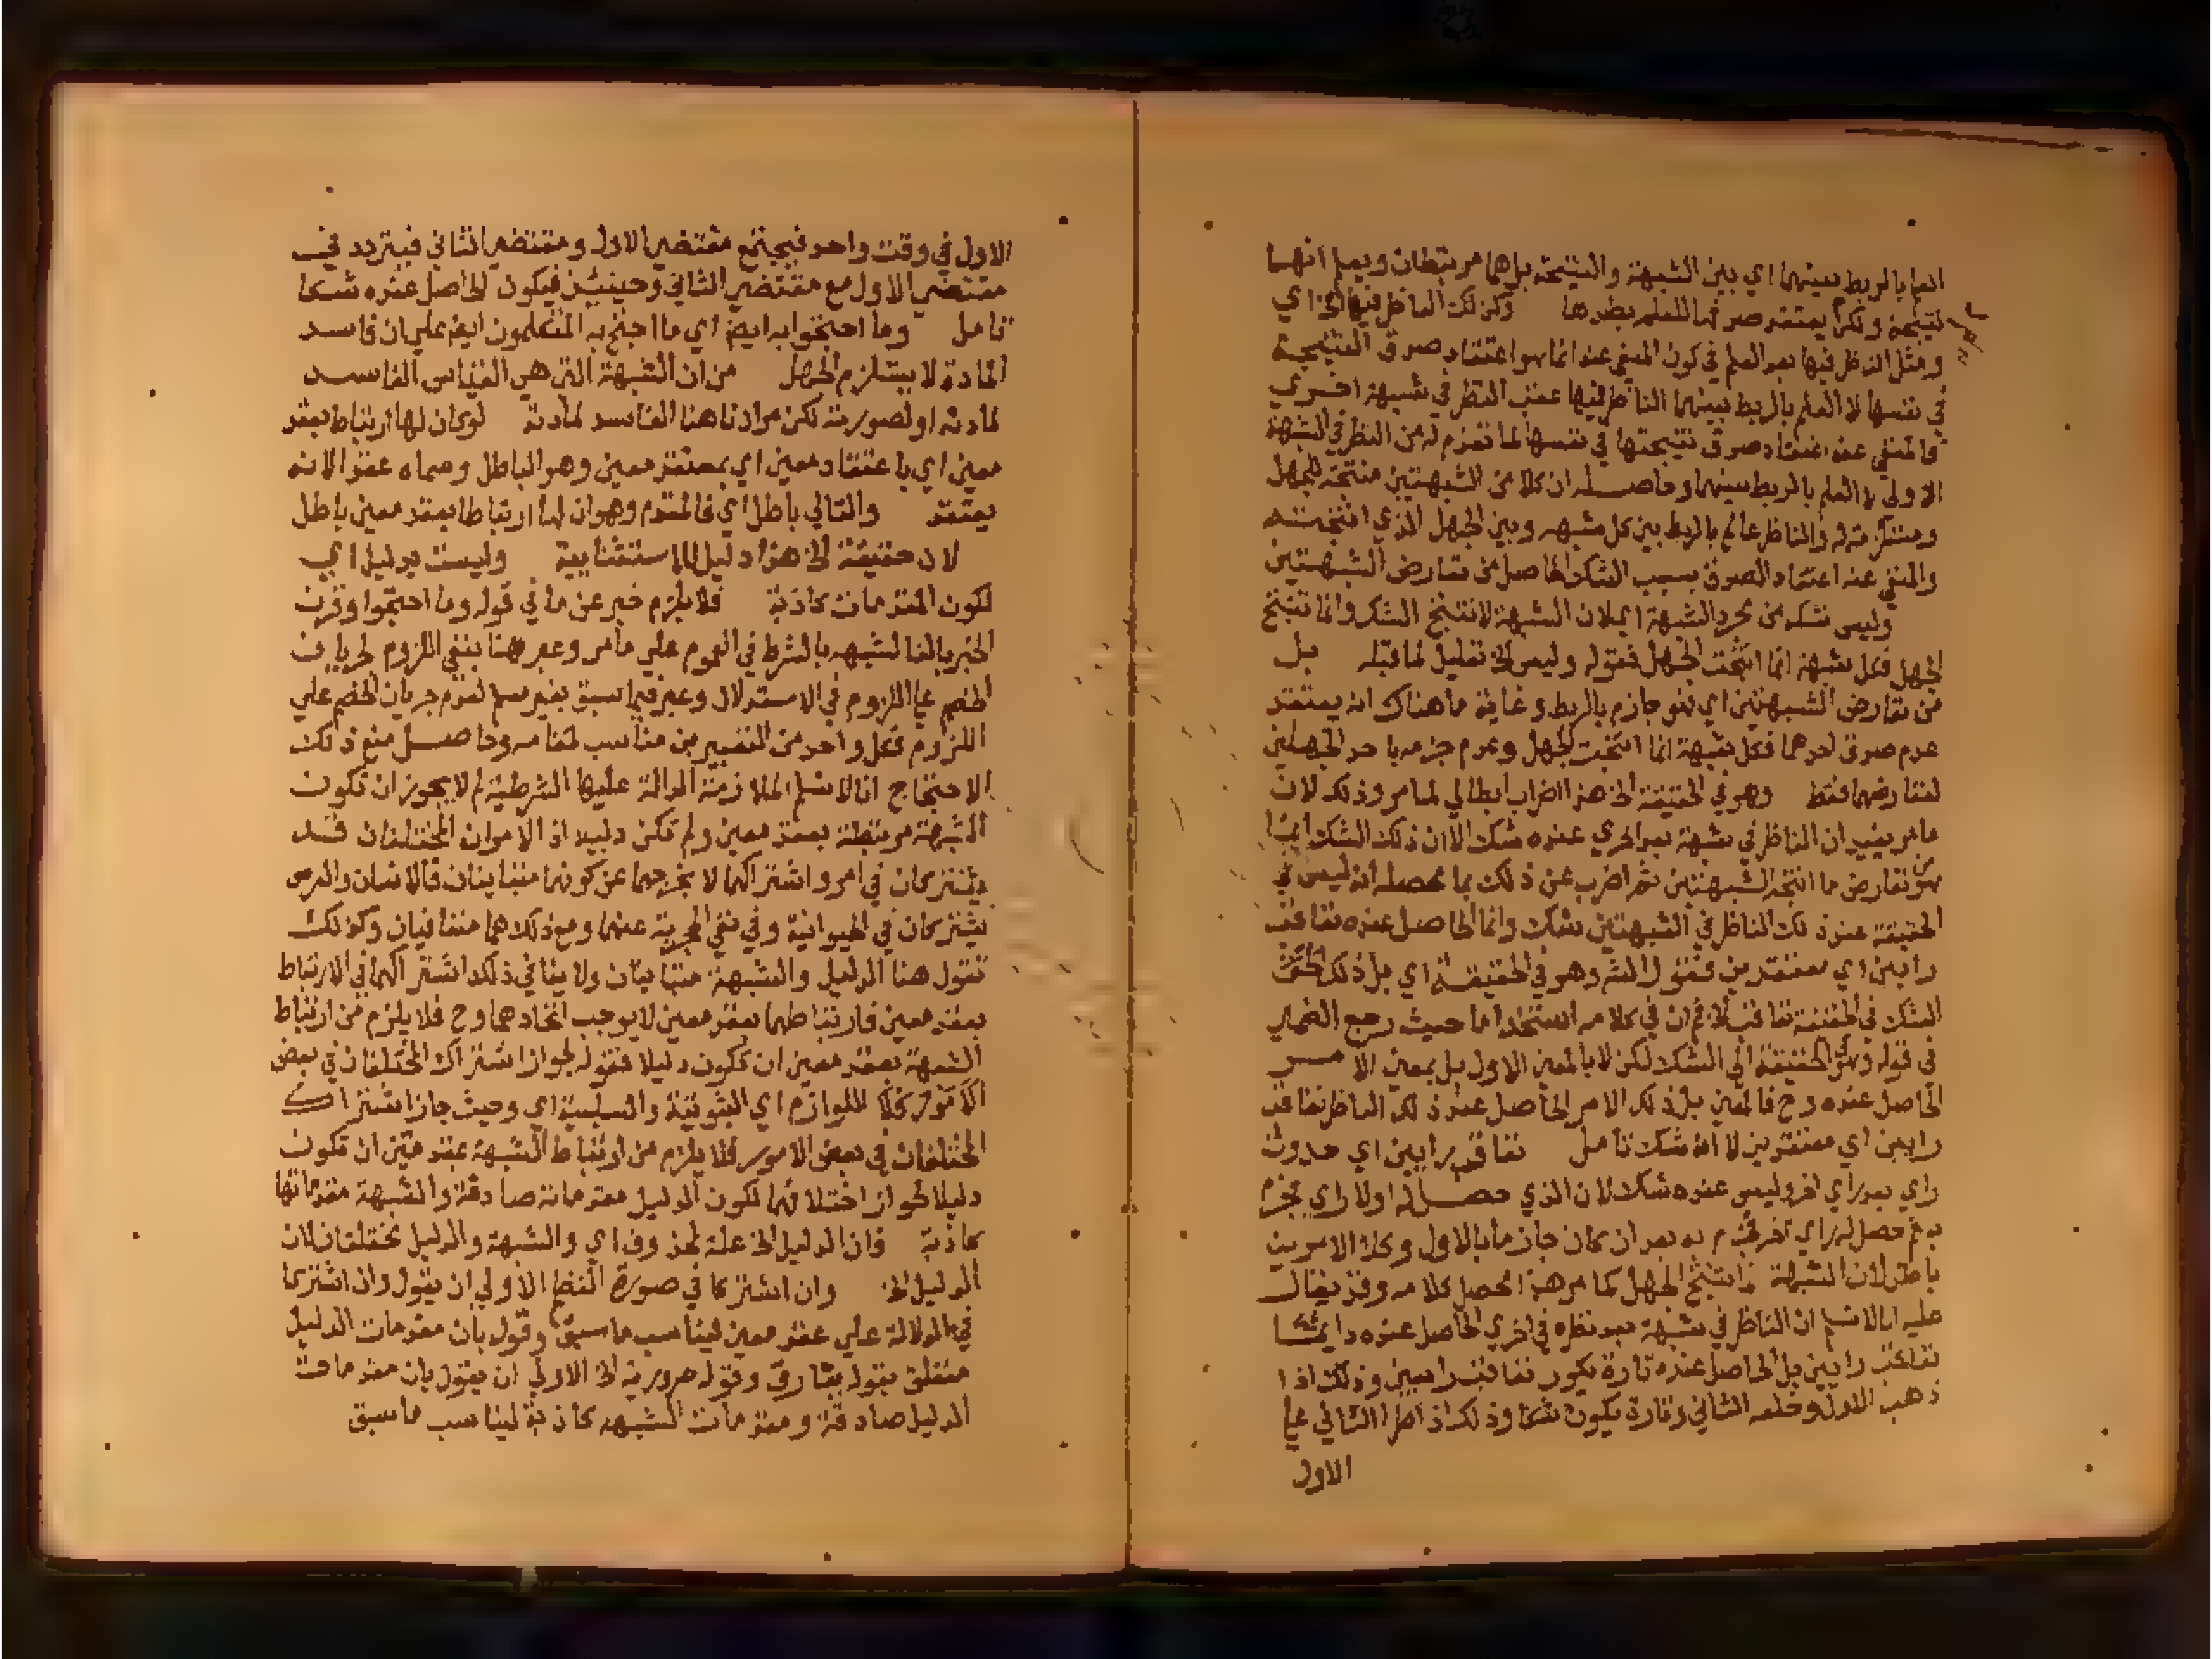 العلم بالربط بينهما اي بين الشبهة والنتيجة بل هما مرتبطان ويعلم انهما
نتيجة ولكن يعتقد صدقها للعلم بطردها وكذلك الناظر فيها الخ اي
ومثل الناظر فيها بعد العلم في كون المنفي عنه انما هو اعتقاد صدق النتيجة
في نفسها لا العلم بالربط بينهما الناظر فيها عقب النظر في شبهة اخري
فالمنفي عنه اعتقاد صدق نتيجتها في نفسها لما تقدم له من النظر في الشبهة
الاولي لا العلم بالربط بينهما وحاصله ان كلا من الشبهتين منتجة للجهل
والناظر عالم بالربط بين كل شبهه وبين الجهل الذي انتجته
والمنفي عنه اعتقاد الصدق بسبب الشك الحاصل من تعارض الشبهتين
وليس شكه من مجرد الشبهة اي لان الشبهة لا تنتج الشك وانما تنتج
الجهل فكل شبهة انما انتجت الجهل فقوله وليس الخ تعليل لما قبله بل
من تعارض الشبهتين اي فهو جازم بالربط وغاية ما هناك انه يعتقد
عدم صدق احدهما فكل شبهة انما انتجت الجهل وعدم جزمه باحد الجهلين
لتعارضهما فقط وهو في الحقيقة الخ هذا اضراب ابطالي لما مر وذلك لان
ما مر يفيد ان الناظر في شبهة بعد اخري عنده شك الا ان ذلك الشك انما
هو من تعارض ما انتجه الشبهتين ثم اضرب عن ذلك بما محصله انه ليس في
الحقيقة عند ذلك الناظر في الشبهتين شك وانما الحاصل عنده تعاقب
رايين اي معتقدين فقول الش وهو في الحقيقة اي بل ذلك
الشك في الحقيقة تعاقب الخ ثم ان في كلامه استخداما حيث رجع الضمير
في قوله وهو في الحقيقة الي الشك لكن لا بالمعني الاول بل بمعني الامر
الحاصل عنده وح فالمعني بل ذلك الامر الحاصل عند ذلك الناظر تعاقب
رايين اي معتقدين لا انه شك تامل تعاقب رايين اي حدوث
راي بعد راي اخر وليس عنده شك لان الذي حصل له اولا راي جزم
به ثم حصل له راي اخر فجزم به بعد ان كان جازما بالاول وكلا الامرين
باطل لان الشبهة انما تنتج الجهل كما مر هذا محصل كلامه وقد يقال
عليه انا لا نسلم ان الناظر في شبهة بعد نظره في اخري الحاصل عنده دايما
تعاقب رايين بل الحاصل عنده تارة يكون تعاقب رايين وذلك اذا
ذهب الاول وخلفه الثاني وتارة يكون شكا وذلك اذا طرا الثاني علي
الاول
الاول في وقت واحد فيجتمع مقتضي الاول ومقتضي الثاني فيتردد في
مقتضي الاول مع مقتضي الثاني وحينئذ فيكون الحاصل عنده شكا
تامل وما احتجوا به ايضا اي ما احتج به المتكلمون ايضا علي ان فاسد
المادة لا يستلزم الجهل من ان الشبهة التي هي القياس الفاسد
لمادته او لصورته لكن مرادنا هنا الفاسد لمادته لو كان لها ارتباط بعقد
معين اي باعتقاد معين اي بمعتقد معين وهو الباطل وسماه عقدا لانه
يعتقد والتالي باطل اي فالمقدم وهو ان لها ارتباطا بعقد معين باطل
لان حقيقة الخ هذا دليل للاستثنايية وليست بدليل اي
لكون المقدمات كاذبة فلا يلزم خبر عن ما في قوله وما احتجوا وقرن
الخبر بالفا لشبهه بالشرط في العموم علي ما مر وعبر هنا بنفي اللزوم لجريان
الخصم علي اللزوم في الاستدلال وعبر فيما سبق بغير مسلم لعدم جريان الخصم علي
اللزوم فكل واحد من التعبيرين مناسب لمقامه وحاصل منع ذلك
الاحتجاج انا لا نسلم الملازمة الدالة عليها الشرطية لم لا يجوز ان تكون
الشبهة مرتبطة بعقد معين ولم تكن دليلا اذ الامران المختلفان قد
يشتركان في امر واشتراكهما لا يخرجهما عن كونهما متباينان فالانسان والفرس
يشتركان في الحيوانية وفي نفي الحجرية عنهما ومع ذلك هما متنافيان وكذلك
نقول هنا الدليل والشبهة متباينان ولا ينافي ذلك اشتراكهما في الارتباط
بعقد معين فارتباطهما بعقد معين لا يوجب اتحادهما وح فلا يلزم من ارتباط
الشبهة بعقد معين ان تكون دليلا فقوله لجواز اشتراك المختلفان في بعض
اللوازم اي الثبوتية والسلبية اي وحيث جاز اشتراك
المختلفان في بعض الامور فلا يلزم من ارتباط الشبهة بعقد معين ان تكون
دليلا لجواز اختلافهما لكون الدليل مقدماته صادقة والشبهة مقدماتها
كاذبة فان الدليل الخ علة لمحذوف اي والشبهة والدليل مختلفان لان
الدليل الخ وان اشتركا في صورة النظم الاولي ان يقول وان اشتركا
في الدلالة علي عقد معين ليناسب ما سبق وقوله بان مقدمات الدليل
متعلق بقوله يفارق وقوله ضرورية الخ الاولي ان يقول بان مقدمات
الدليل صادقة ومقدمات الشبهه كاذبة ليناسب ما سبق